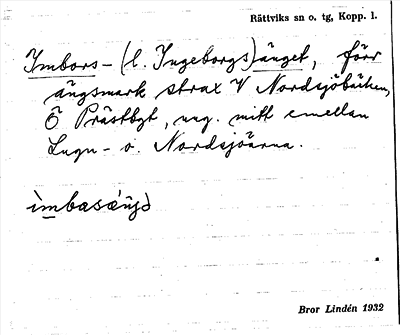 Rättviks sn o. tg, Kopp. l.
Imbors- (l. Ingeborgs)änget, förr
ängsmark strax V Nordsjöbäcken,
Ö Prästbyt, ung. mitt emellan
Lugn- o. Nordsjöarna.
ìmbasæ̀ŋd
Bror Lindén 1932